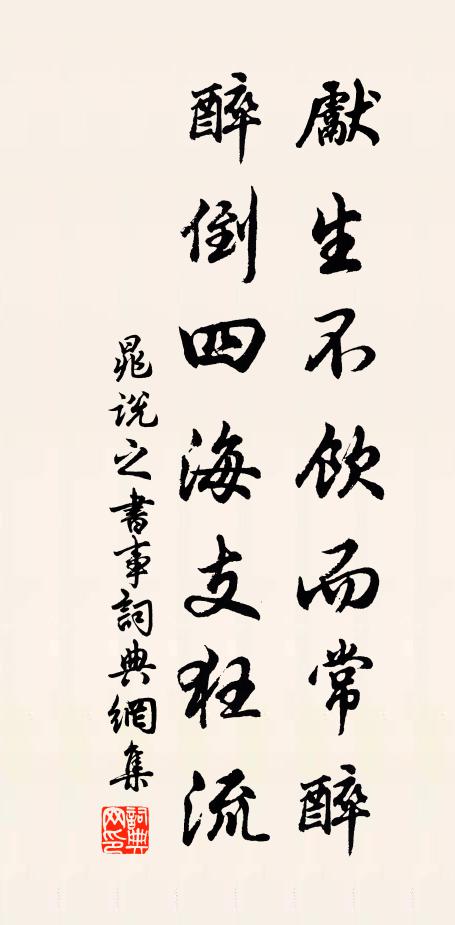 獻生不飲而常醉
醉倒四海支狂流
晁說之書事詞典網集
詞典網印